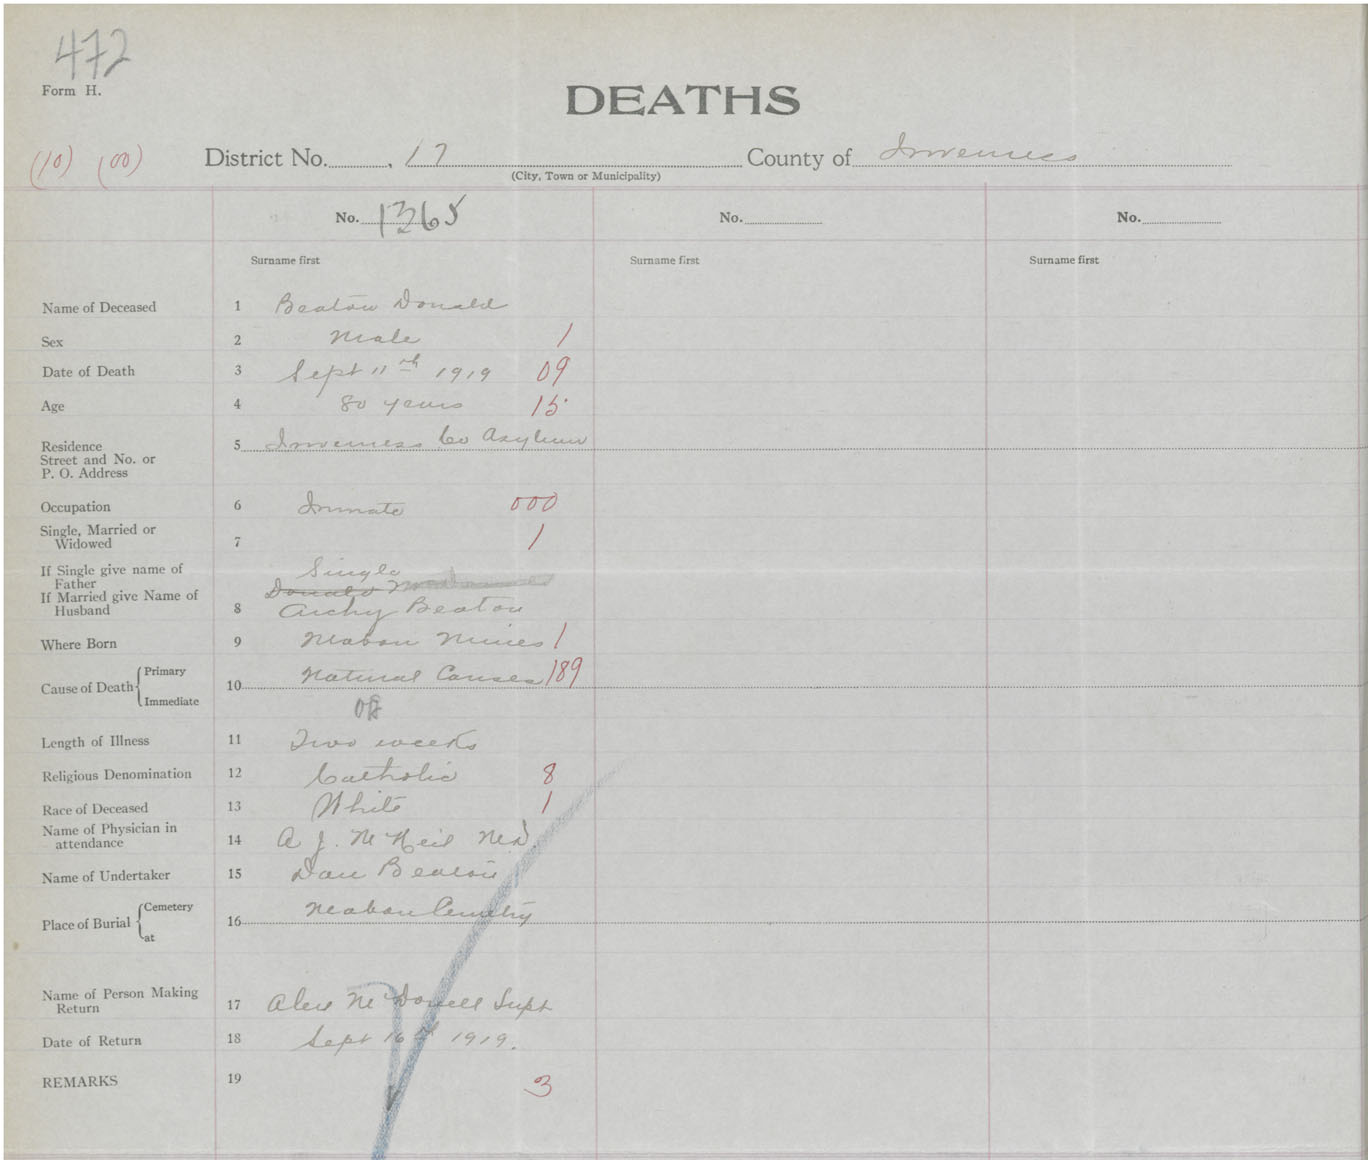 472
Form H.
DEATHS
(10) (00) District No. , 17 County of Inverness
(City, Town or Municipality)
No. 1365 No. No.
Surname first Surname first Surname first
Name of Deceased 1 Beaton Donald
Sex 2 Male 1
Date of Death 3 Sept 11th 1919 09
Age 4 80 years 15
Residence 5 Inverness Co Asylum
Street and No. or
P. O. Address
Occupation 6 Inmate 000
Single, Married or 1
Widowed 7
If Single give name of Single
Father Donald
If Married give Name of
Husband 8 Archy Beaton
Where Born 9 Mabou Mines 1
Primary
Cause of Death 10 Natural Causes 189
Immediate
Length of Illness 11 Two weeks
Religious Denomination 12 Catholic 8
Race of Deceased 13 White 1
Name of Physician in
attendance 14 A J. McNeil MD
Name of Undertaker 15 Dan Beaton
Cemetery Mabou Cemetry
Place of Burial 16
at
Name of Person Making
Return 17 Alex McDonell Supt
Date of Return 18 Sept 16th 1919.
REMARKS 19 3